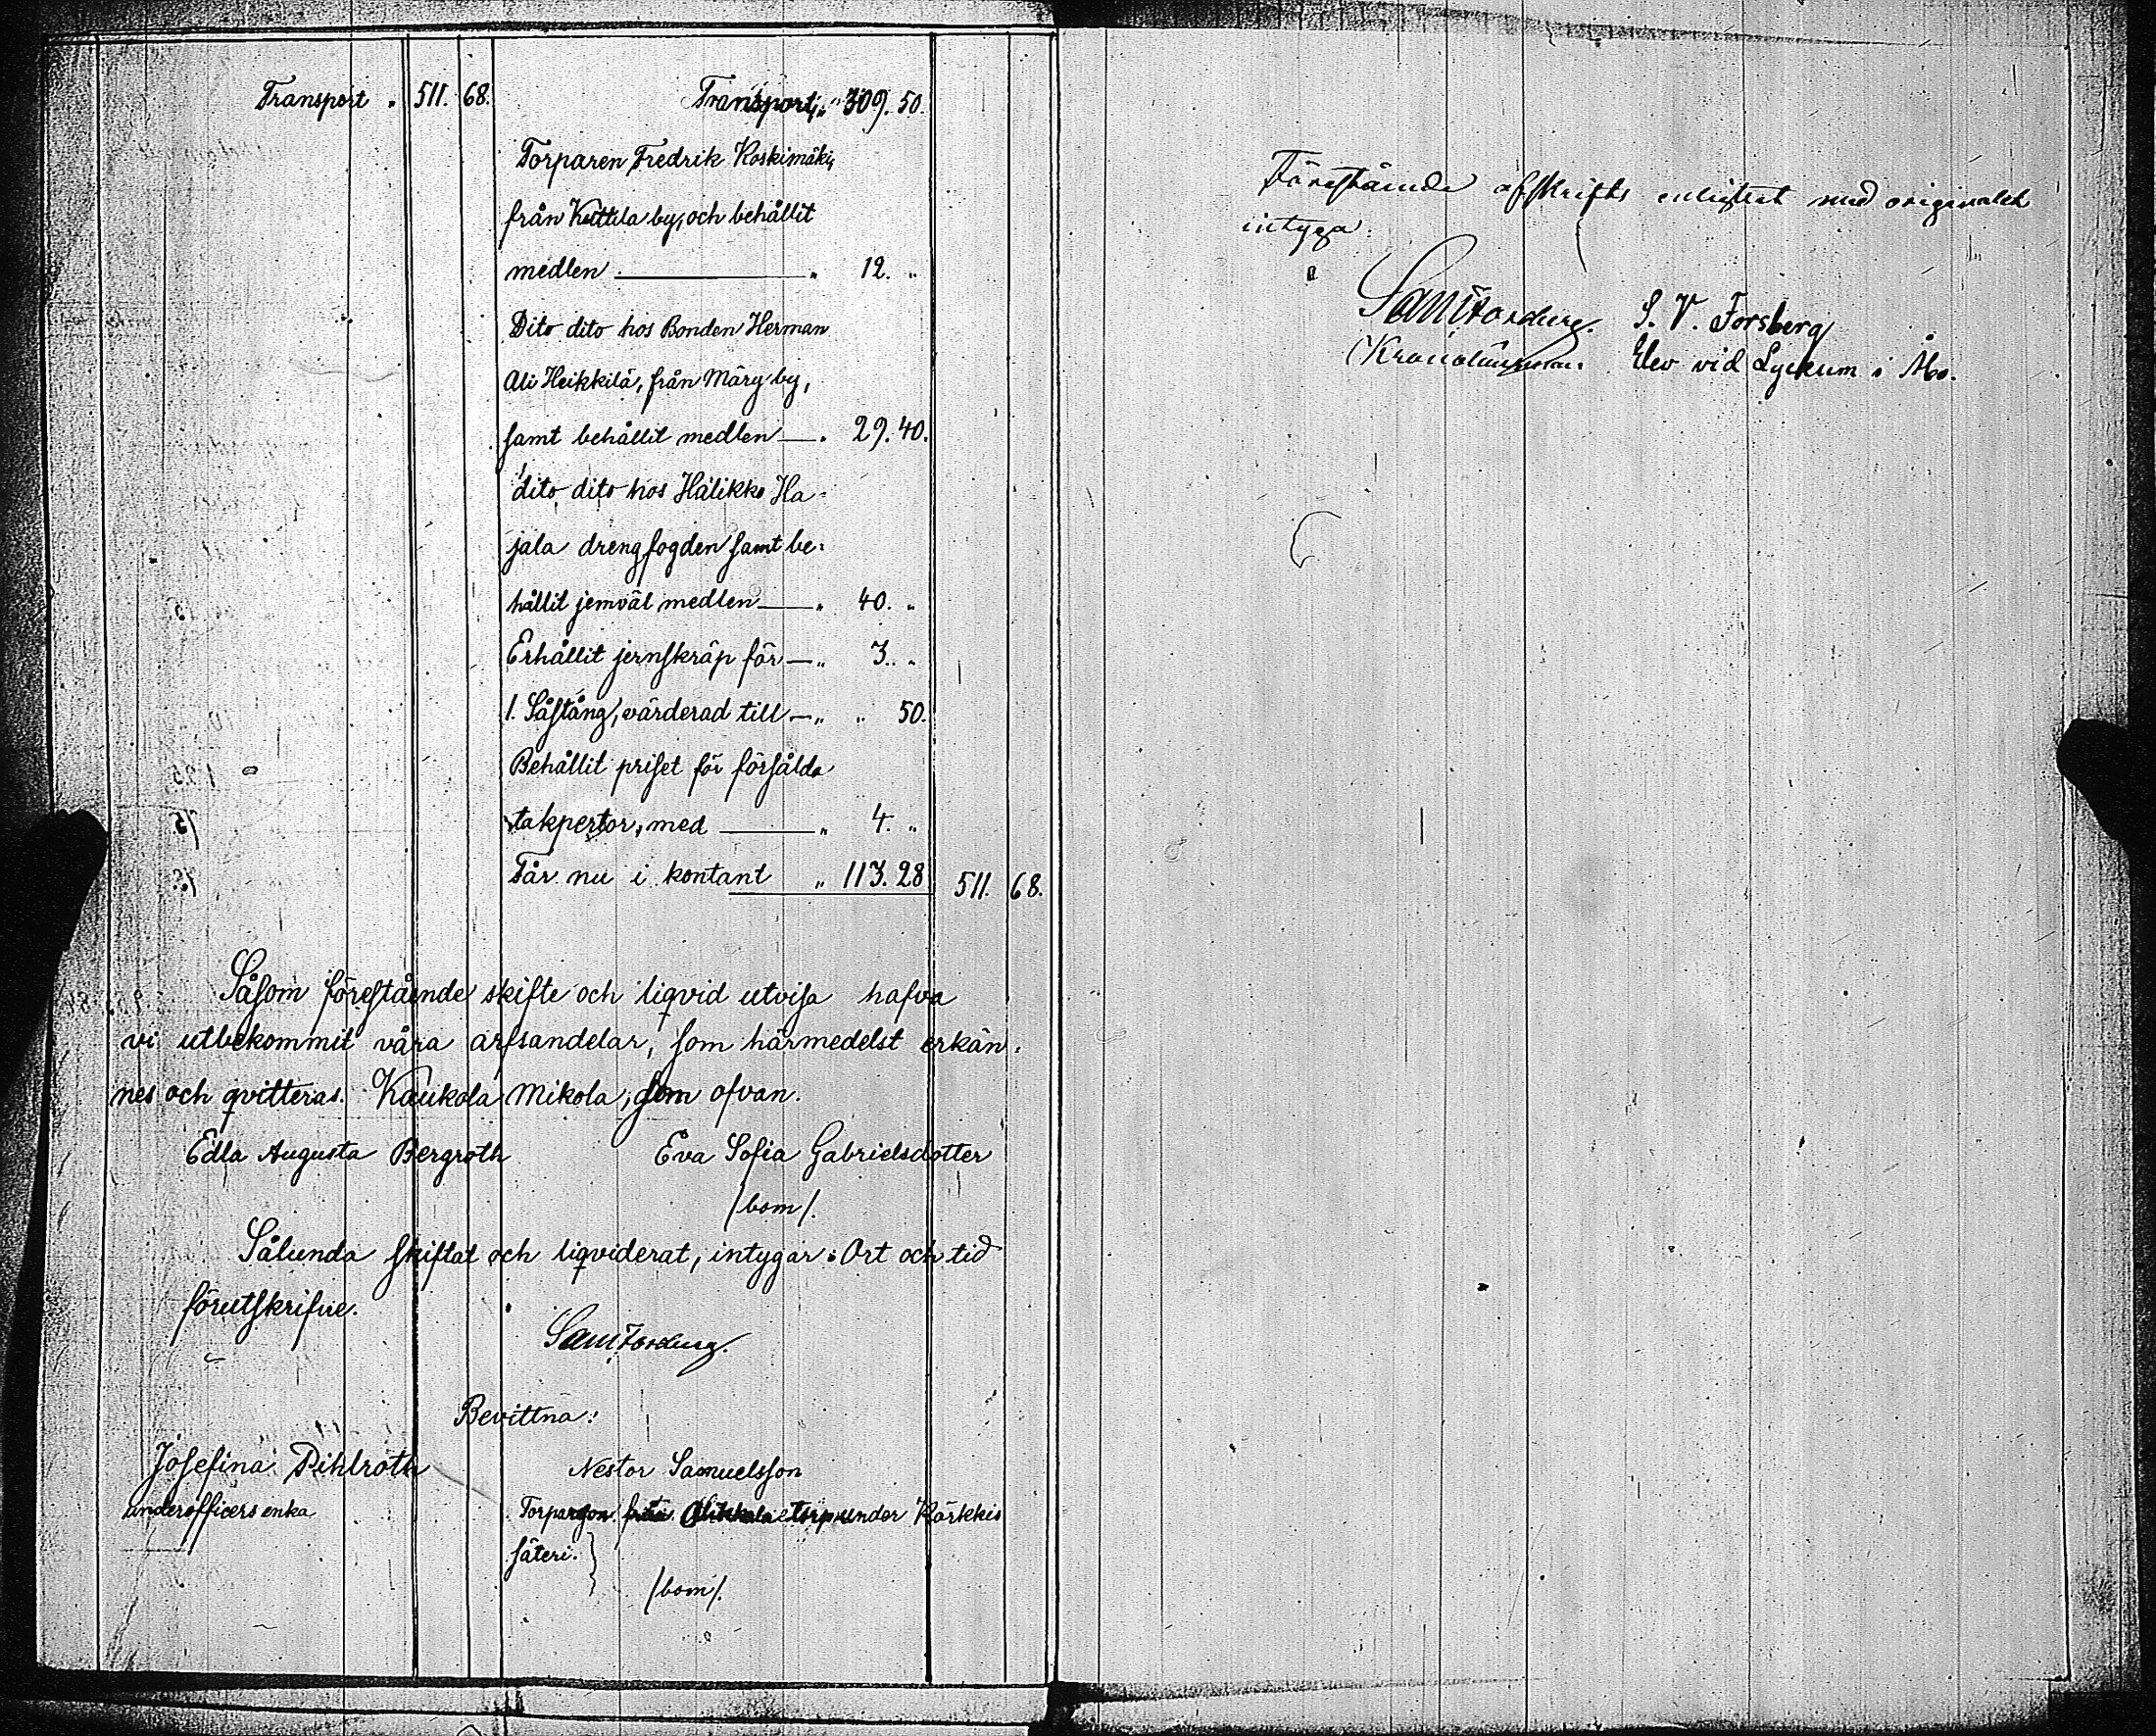 Transport „ 511. 68. Transport, „ 309. 50.
Torparen Fredrik Koskimäki,
från Kuttila by, och behållit
medlen „ 12. „
Dito dito hos Bonden Herman
Ali Heikkilä, från Märy by,
samt behållit medlen „ 29. 40.
dito dito hos Halikko Ha-
jala drengfogden samt be-
hållit jemväl medlen „ 40. „
Erhållit jernskräp för „ 3. „
1. Såstång, värderad till „ „ 50.
Behållit priset för försålda
takpertor, med „ 4. „
Får nu i kontant „ 113. 28 511. 68.
Såsom förestående skifte och liqvid utvisa hafva
vi utbekommit våra arfsandelar, som härmedelst erkän-
nes och qvitteras. Kaukola Mikola, som ofvan.
Edla Augusta Bergroth Eva Sofia Gabrielsdotter
/bom/.
Sålunda skiftat och liqviderat, intygar: Ort och tid
förutskrifne.
Sam Forsberg.
Bevittna:
Josefina Pihlroth Nestor Samuelsson
underofficers enka Torpareson från torp under Kärkkis
säteri.
/bom/.
Förestående afskrifts enlighet med originalet
intyga:
Sam Forsberg. S. V. Forsberg
Kronolänsman. Elev vid Lyckum i Åbo.